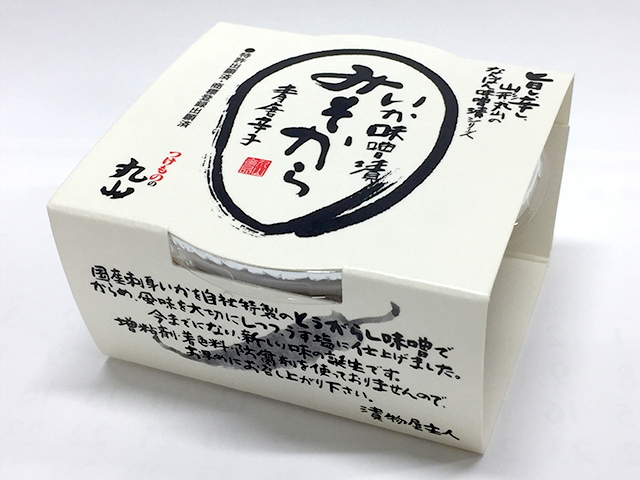 旨い辛い、
山形丸山の
なんばん味噌漬シリーズ
いか味噌漬
みそから
青唐辛子
●特許出願済・商標登録出願済
つけものの
丸山
国産刺身いかを自社特製のとうがらし味噌で
からめ、風味を大切にしつつ、うす塩に仕上げました。
今までにない新しい味の誕生です。
増粘剤・着色料・防腐剤を使っておりませんので、
お早めにお召し上がり下さい。
漬物屋主人